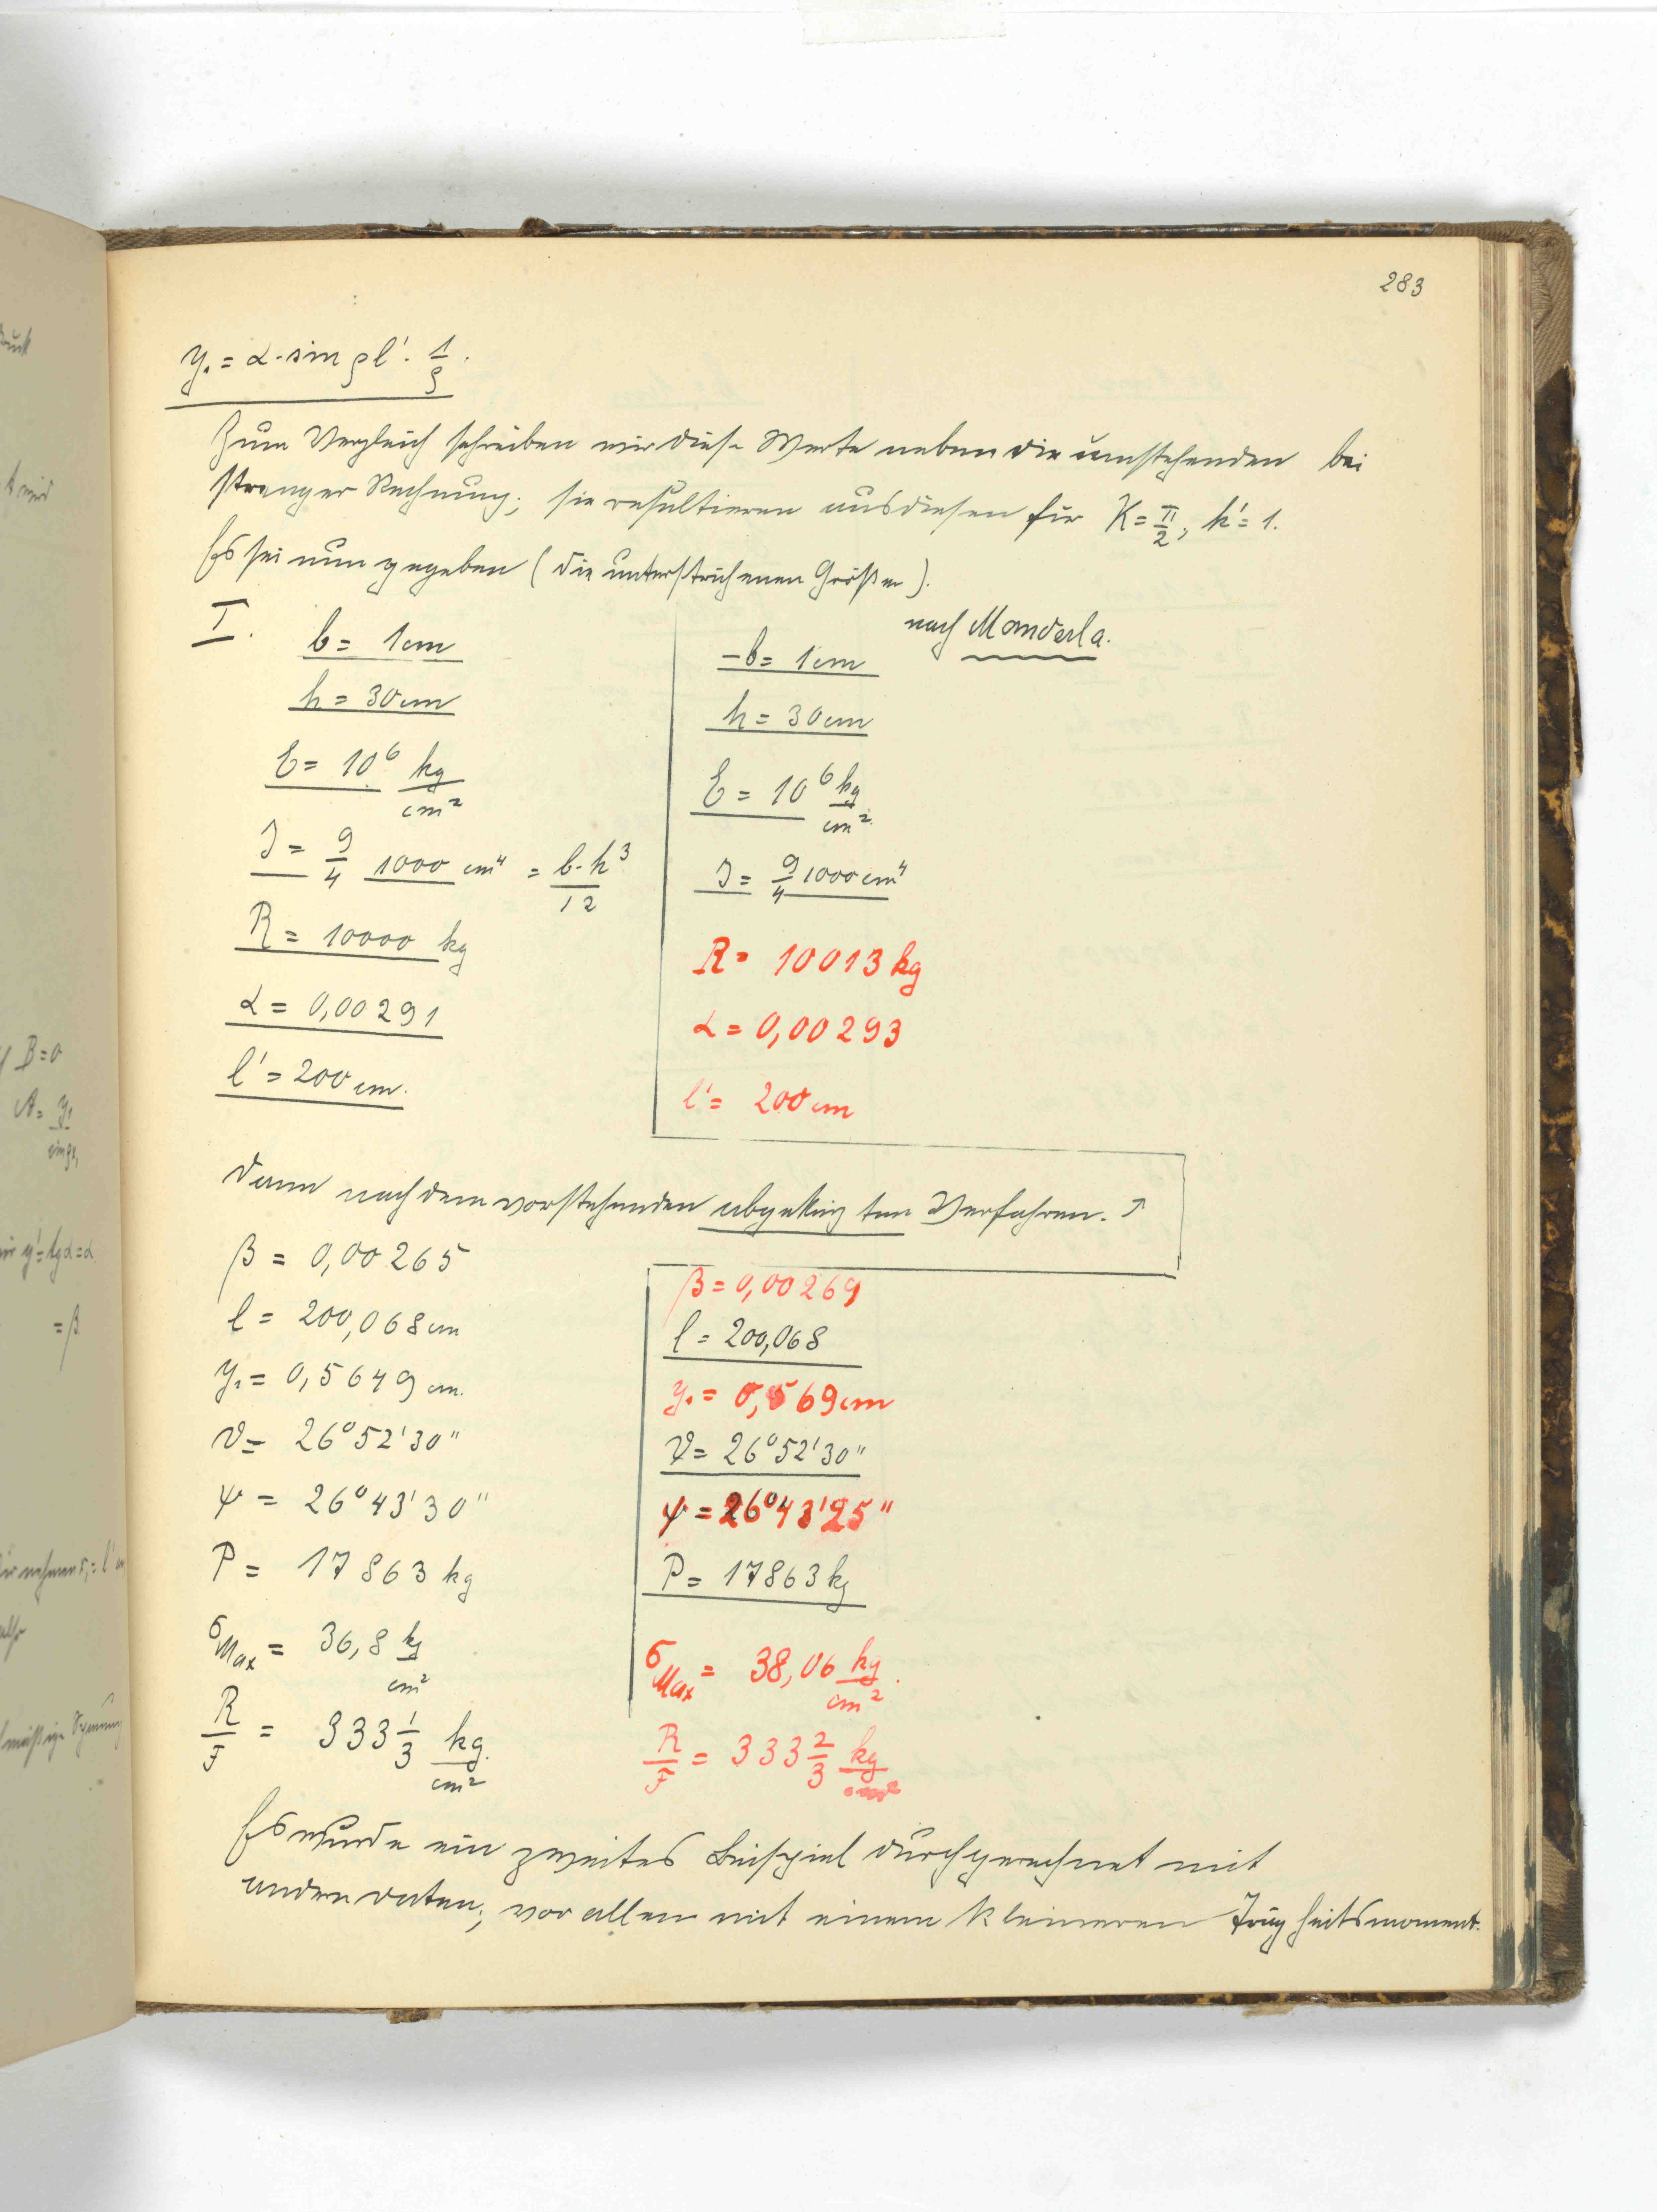 283
y₁ = α·sin ρl'· 1/ρ.
Zum Vergleich schreiben wir diese Werte neben die umstehenden bei
strenger Rechnung; sie resultieren aus diesen für K = π/2; k' = 1.
Es sei nun gegeben (die unterstrichenen Größen).
nach Manderla.
I. b = 1cm
h = 30cm
E = 10⁶ kg/cm²
J = 9/4 1000 cm⁴ = b·h³/12
R = 10000 kg
α = 0,00291
l' = 200 cm.
b = 1cm
h = 30cm
E = 10⁶ kg/cm²
J = 9/4 1000 cm⁴
R = 10013 kg
α = 0,00293
l' = 200 cm
Dann nach dem vorstehenden abgekürzten Verfahren.
β = 0,00265
l = 200,068 cm
y₁ = 0,5649 cm.
ϑ = 26°52'30"
ψ = 26°43'30"
P = 17863 kg
σMax = 36,8 kg/cm²
R/F = 333 1/3 kg/cm²
β = 0,00269
l = 200,068
y₁ = 0,569 cm
ϑ = 26°52'30"
ψ = 26°43'25"
P = 17863 kg
σMax = 38,06 kg/cm².
R/F = 333 2/3 kg/cm²
Es wurde ein zweites Beispiel durchgerechnet mit
andern Daten; vor allem mit einem kleineren Trägheitsmoment.